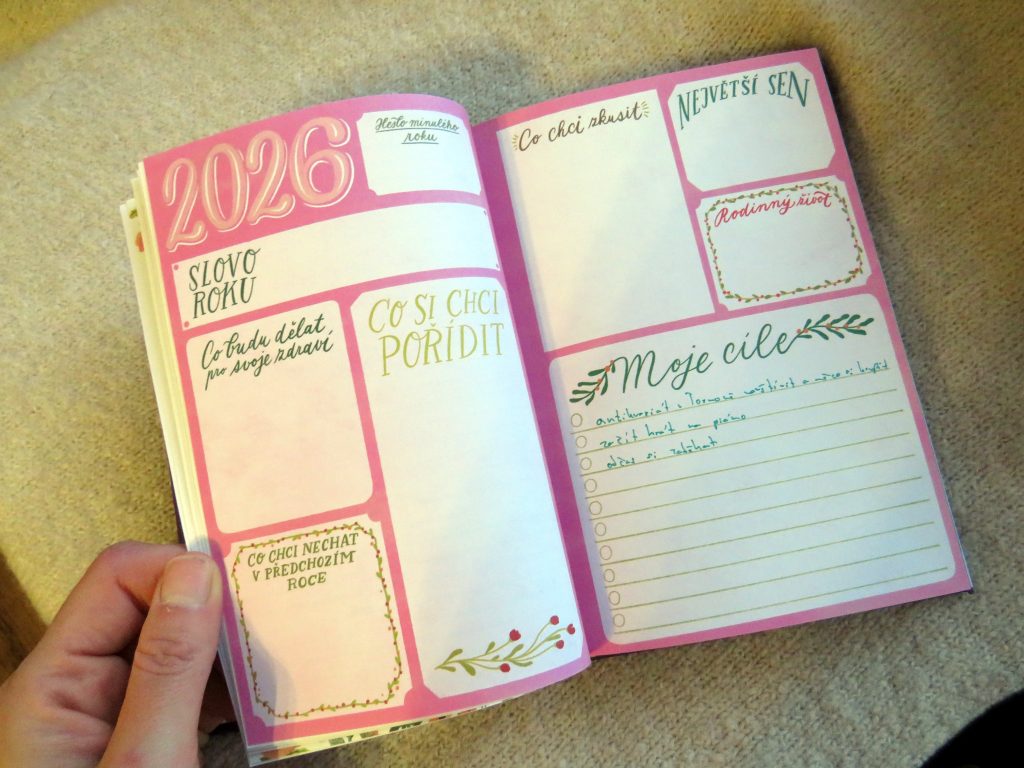 2026
Heslo minulého
roku
SLOVO
ROKU
Co budu dělat
pro svoje zdraví
CO SI CHCI
POŘÍDIT
CO CHCI NECHAT
V PŘEDCHOZÍM
ROCE
Co chci zkusit
NEJVĚTŠÍ SEN
Rodinný život
Moje cíle
antikvariát v navštívit a něco si koupit
začít hrát na piáno
občas si